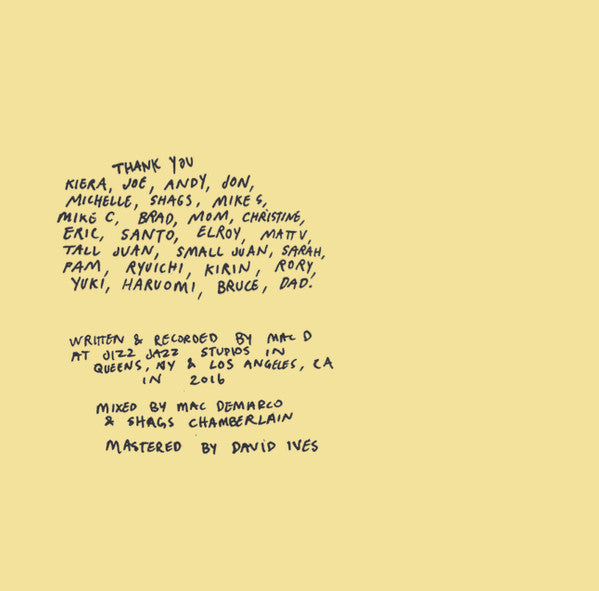 THANK YOU
KIERA, JOE, ANDY, JON,
MICHELLE, SHAGS, MIKE S,
MIKE C, BRAD, MOM, CHRISTINE,
ERIC, SANTO, ELROY, MATT V,
TALL JUAN, SMALL JUAN, SARAH,
PAM, RYUICHI, KIRIN, RORY,
YUKI, HARUOMI, BRUCE, DAD.
WRITTEN & RECORDED BY MAC D
AT JIZZ JAZZ STUDIOS IN
QUEENS, NY & LOS ANGELES, CA
IN 2016
MIXED BY MAC DEMARCO
& SHAGS CHAMBERLAIN
MASTERED BY DAVID IVES